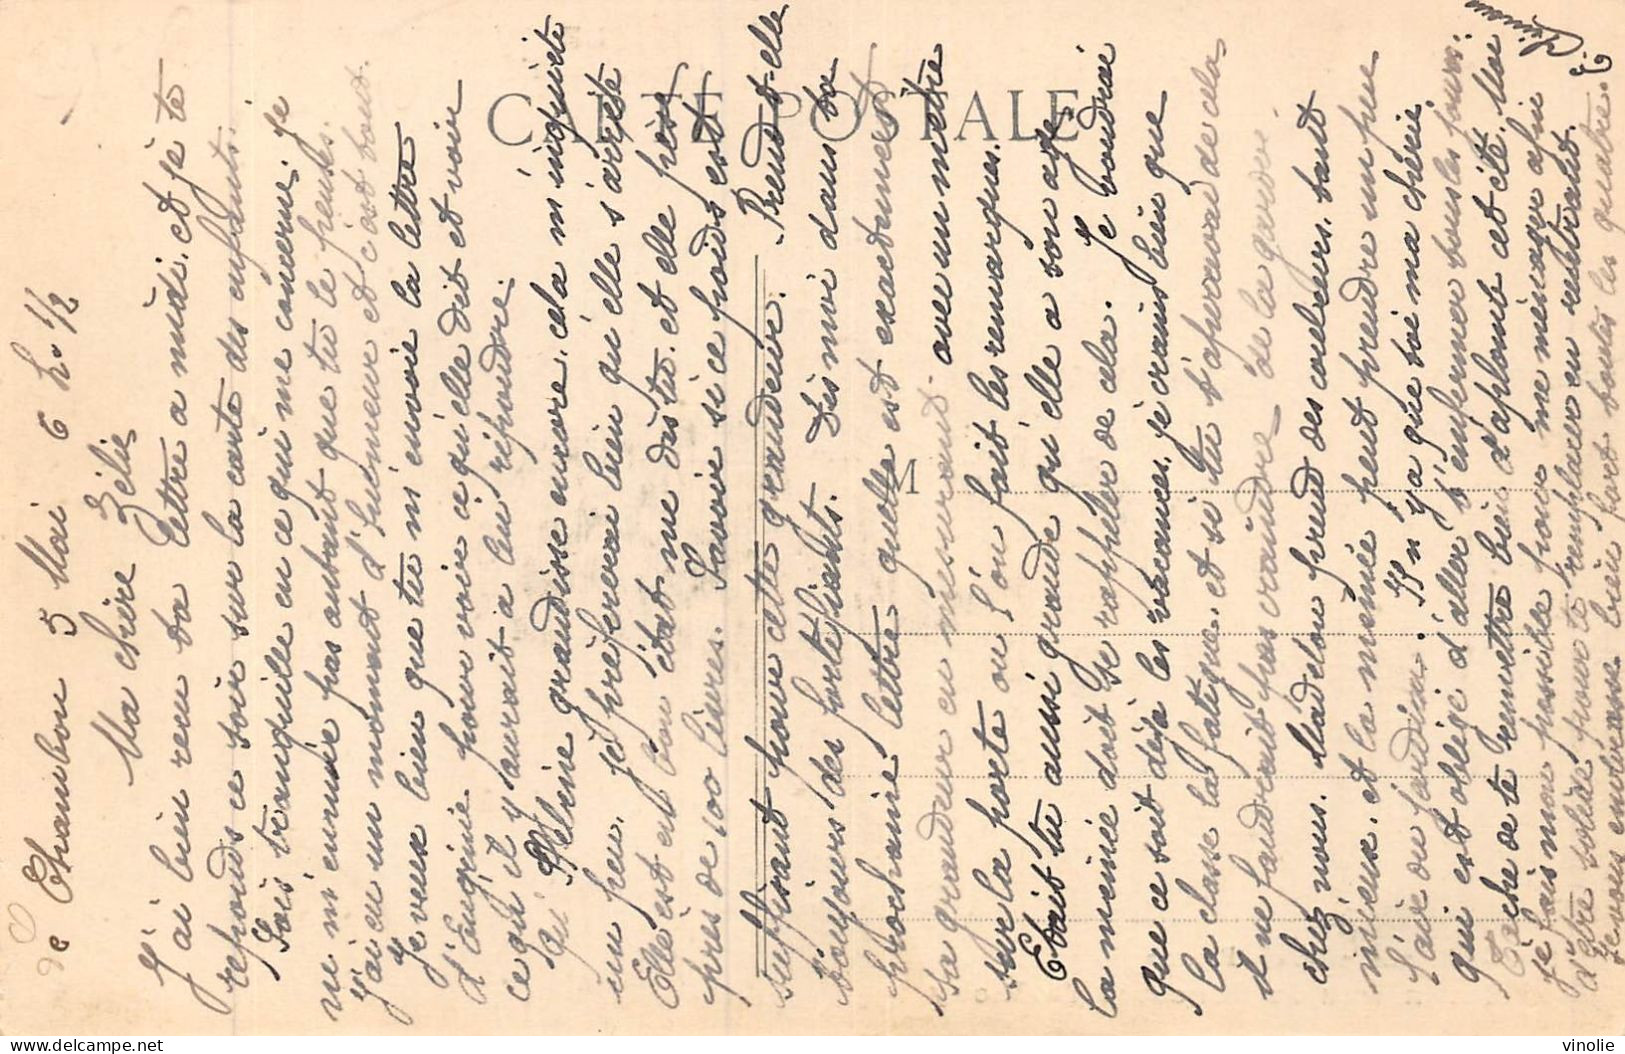 de Chambon 5 Mai 6 h. 1/2
Ma chère Zélie
J'ai bien reçu ta lettre a midi. et je te
reponds ce soir sur la carte des enfants.
Sois tranquille en ce qui me concerne. Je
ne m'ennuie pas autant que tu le penses.
J'ai eu un moment d'humeur et c'est tout.
Je veux bien que tu m'envoie la lettre
d'Eugénie pour voir ce qu'elle dit et voir
ce qu'il y aurait a lui répondre.
Si Hélène grandisse encore. cela m'inquiète
un peu. je préfererai bien qu'elle s'arrête
Elle est en bon état me dis tu. et elle pèse
près de 100 livres. Savoir si ce poids est
suffisant pour cette grandeur. Prend-elle
toujours des fortifiants. Dis moi dans ta
prochaine lettre quelle est exactement
sa grandeur en mesurant avec un mètre
sur la porte ou l'on fait les remarques.
Etait tu aussi grande qu'elle a son age.
La mémée doit se rappeler de cela. Je voudrai
que ce soit déjà les vacances, je crains bien que
la classe la fatigue. et si tu t'apercevai de cela
il ne faudrait pas craindre de la garder
chez nous. Madelon prend des couleurs. tant
mieux. et la mémée peut prendre un peu
l'air du jardin. Il n'y a que toi ma chérie
qui est obligé d'aller s'enfermer tous les jours.
Tache de te remettre bien d'aplomb cet été. Moi
je fais mon possible pour me ménager afin
d'être solide pour te remplacer en rentrant.
Je vous embrasse bien fort toutes les quatre.
CARTE POSTALE
M
vinolie